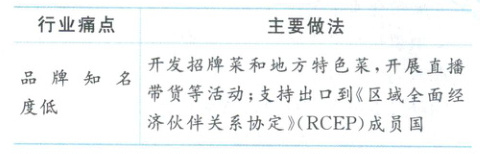 行业痛点 主要做法
品牌知名 开发招牌菜和地方特色菜,开展直播
度低 带货等活动;支持出口到《区域全面经
济伙伴关系协定》(RCEP)成员国